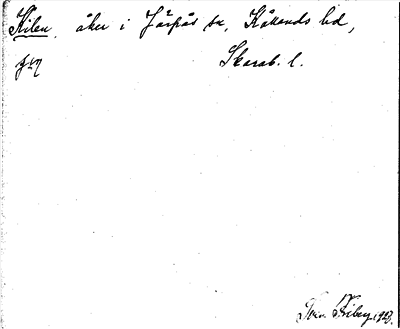 Kilen, åker i Järpås sn, Kållands hd,
Skarab. l.
Ivar Friberg 1923.